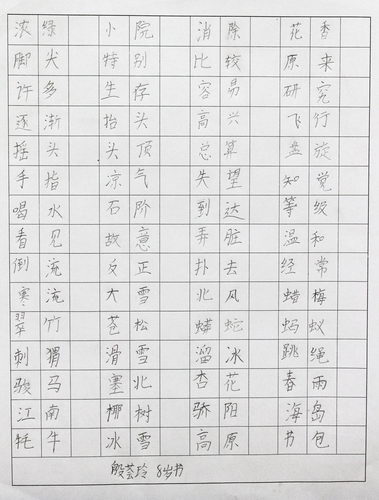 浓绿 小院 消除 花香
脚尖 特别 比较 原来
许多 生存 容易 研究
逐渐 抬头 高兴 飞行
摇头 头顶 总算 盘旋
手指 凉气 失望 知觉
喝水 石阶 到达 等级
看见 故意 弄脏 温和
倒流 反正 扑去 经常
寒流 大雪 北风 蜡梅
翠竹 苍松 蟒蛇 蚂蚁
刺猬 滑雪 溜冰 跳绳
骏马 塞北 杏花 春雨
江南 椰树 骄阳 海岛
牦牛 冰雪 高原 书包
殷荟玲 8岁书